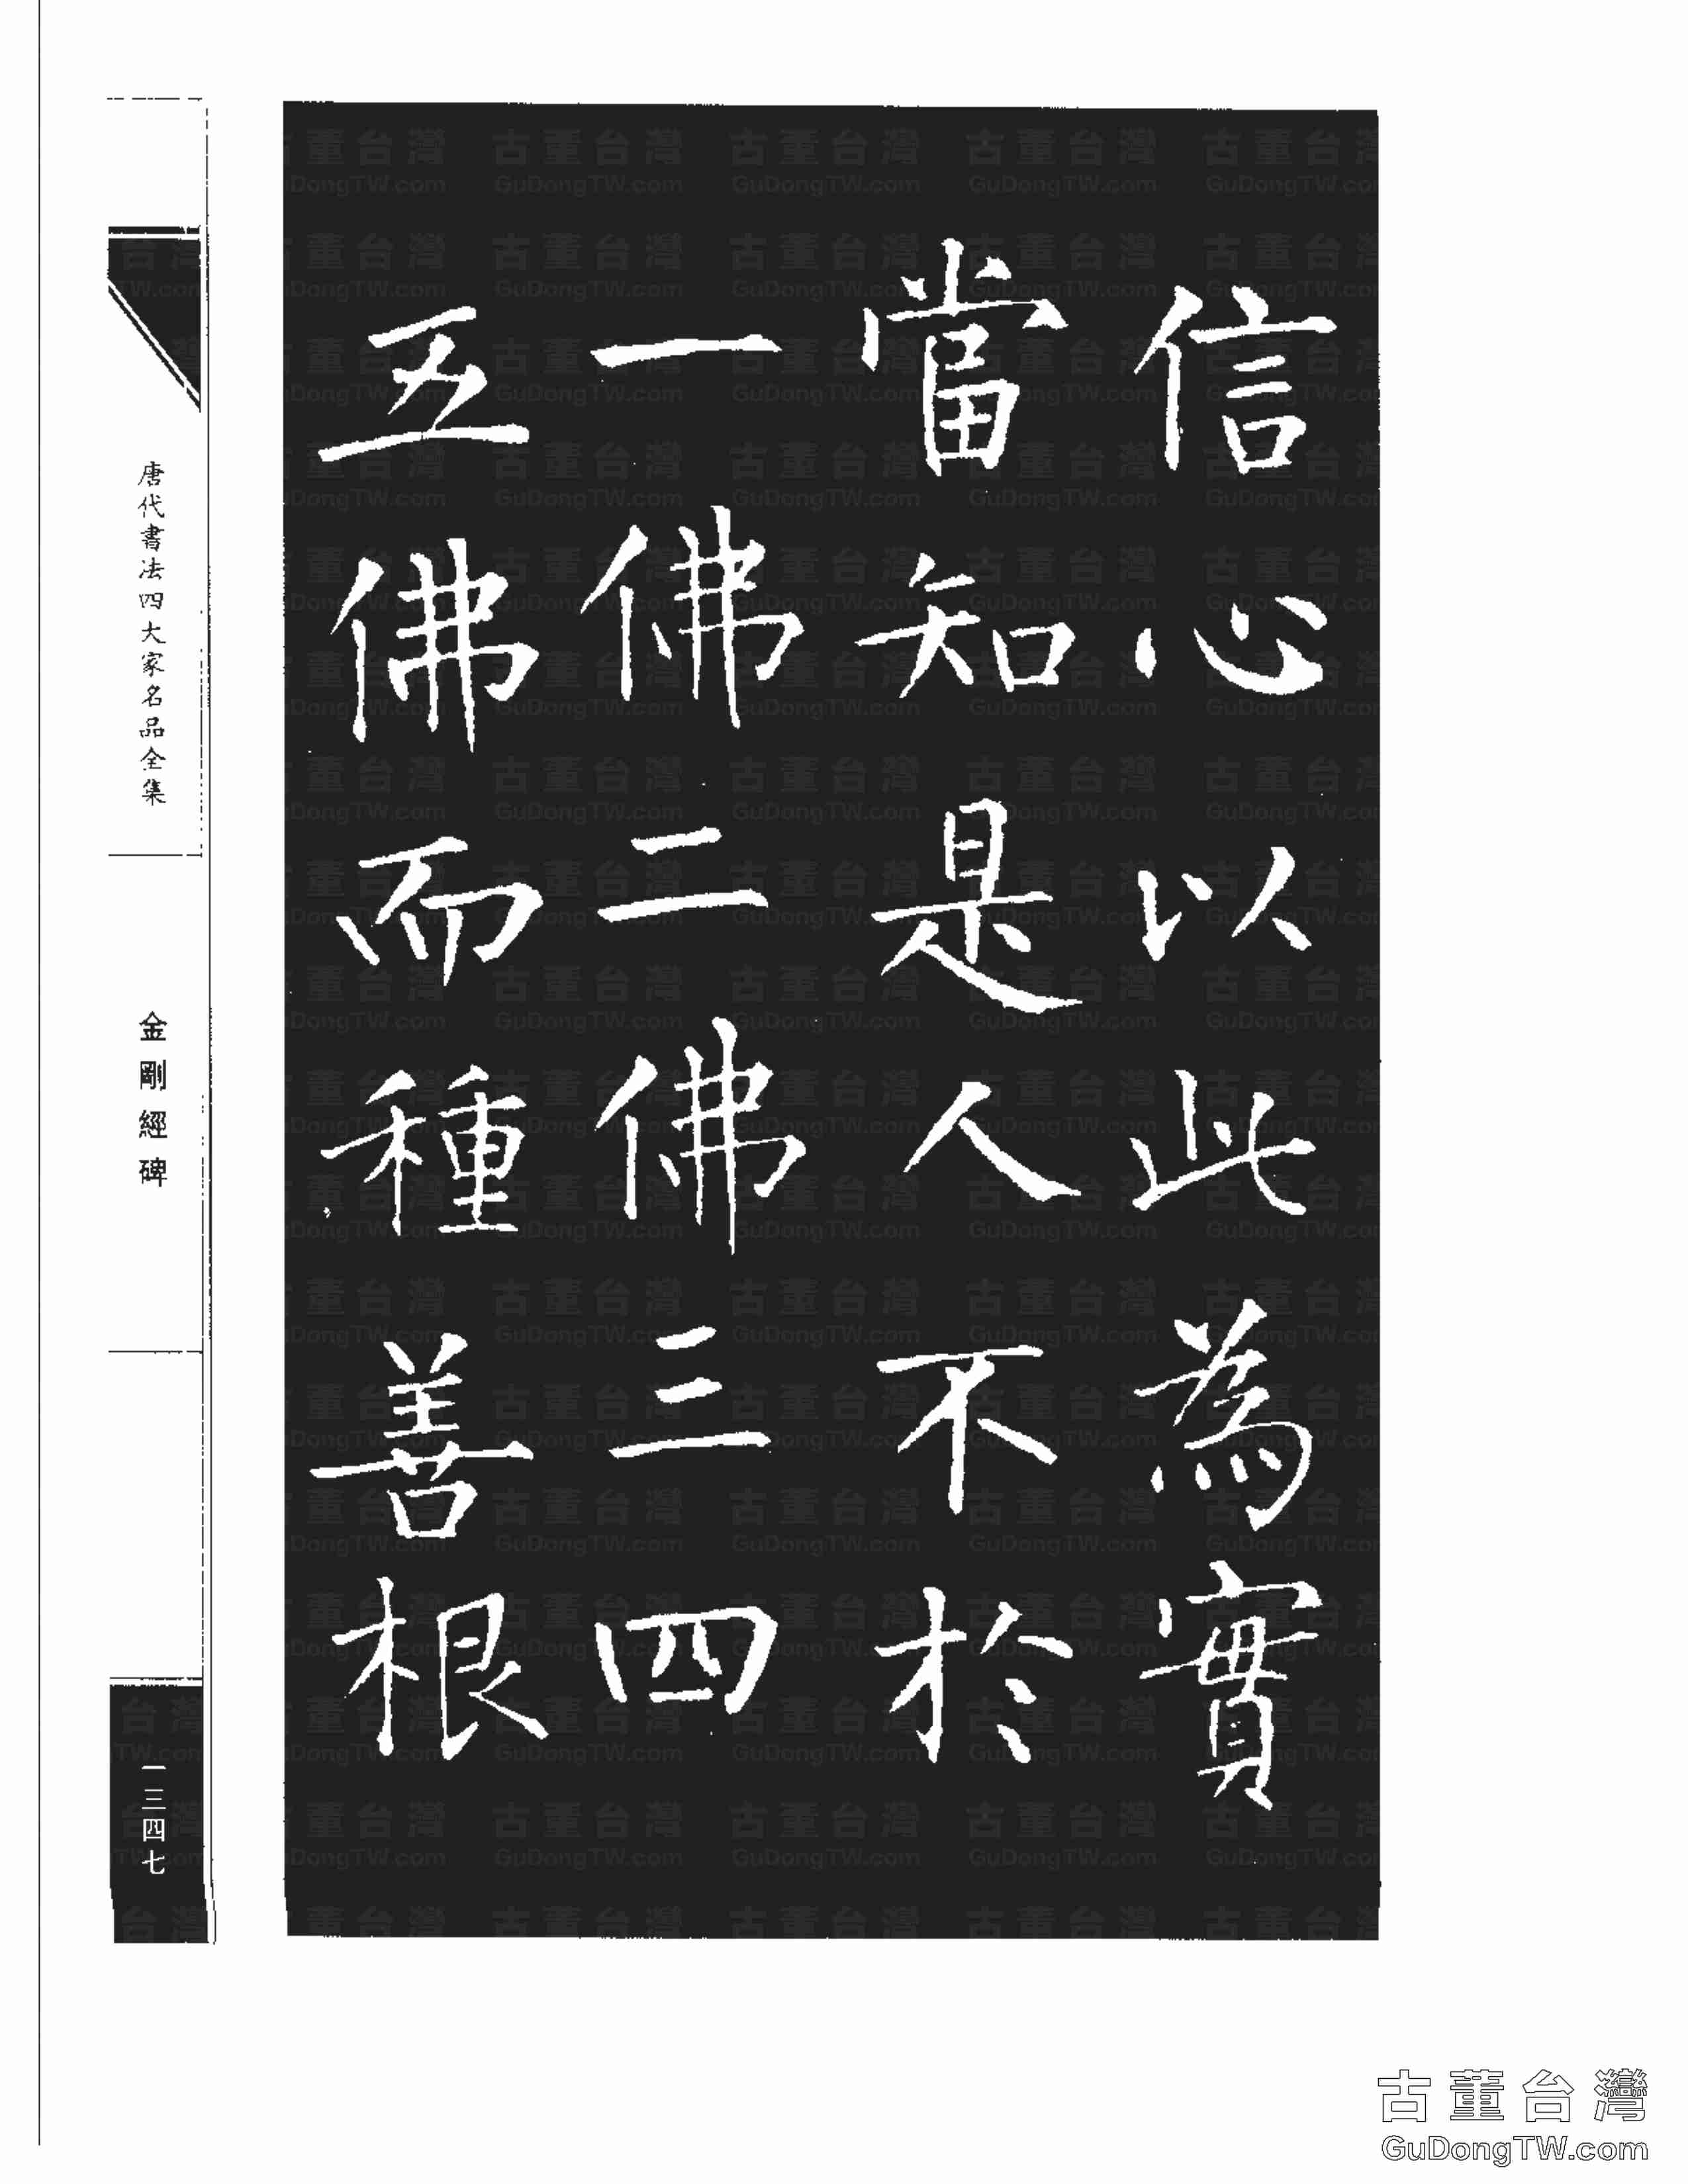 信心以此為實
當知是人不於
一佛二佛三四
五佛而種善根
唐代書法四大家名品全集
金剛經碑
一三四七
古董台灣
GuDongTW.com